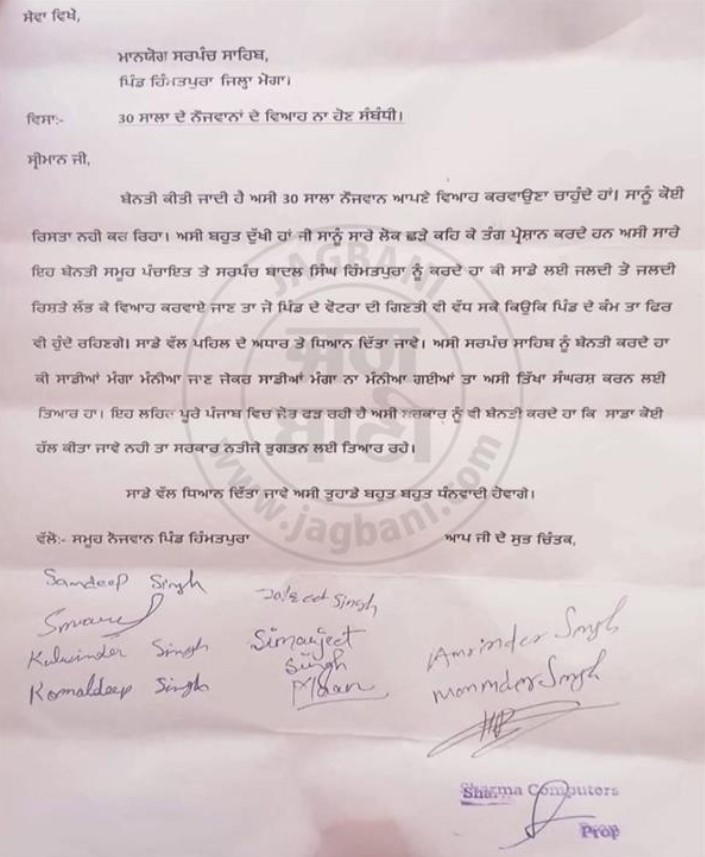 ਸੇਵਾ ਵਿਖੇ,
ਮਾਨਯੋਗ ਸਰਪੰਚ ਸਾਹਿਬ,
ਪਿੰਡ ਹਿੰਮਤਪੁਰਾ ਜਿਲ੍ਹਾ ਮੋਗਾ।
ਵਿਸਾ:- 30 ਸਾਲਾ ਦੇ ਨੌਜਵਾਨਾਂ ਦੇ ਵਿਆਹ ਨਾ ਹੋਣ ਸੰਬੰਧੀ।
ਸ੍ਰੀਮਾਨ ਜੀ,
ਬੇਨਤੀ ਕੀਤੀ ਜਾਦੀ ਹੈ ਅਸੀ 30 ਸਾਲਾ ਨੌਜਵਾਨ ਆਪਣੇ ਵਿਆਹ ਕਰਵਾਉਣਾ ਚਾਹੁੰਦੇ ਹਾਂ। ਸਾਨੂੰ ਕੋਈ
ਰਿਸਤਾ ਨਹੀ ਕਰ ਰਿਹਾ। ਅਸੀ ਬਹੁਤ ਦੁੱਖੀ ਹਾਂ ਜੀ ਸਾਨੂੰ ਸਾਰੇ ਲੋਕ ਛੜੇ ਕਹਿ ਕੇ ਤੰਗ ਪ੍ਰੇਸ਼ਾਨ ਕਰਦੇ ਹਨ ਅਸੀ ਸਾਰੇ
ਇਹ ਬੇਨਤੀ ਸਮੂਹ ਪੰਚਾਇਤ ਤੇ ਸਰਪੰਚ ਬਾਦਲ ਸਿੰਘ ਹਿੰਮਤਪੁਰਾ ਨੂੰ ਕਰਦੇ ਹਾ ਕੀ ਸਾਡੇ ਲਈ ਜਲਦੀ ਤੋ ਜਲਦੀ
ਰਿਸ਼ਤੇ ਲੱਭ ਕੇ ਵਿਆਹ ਕਰਵਾਏ ਜਾਣ ਤਾ ਜੋ ਪਿੰਡ ਦੇ ਵੋਟਰਾ ਦੀ ਗਿਣਤੀ ਵੀ ਵੱਧ ਸਕੇ ਕਿਉਕਿ ਪਿੰਡ ਦੇ ਕੰਮ ਤਾ ਫਿਰ
ਵੀ ਹੁੰਦੇ ਰਹਿਣਗੇ। ਸਾਡੇ ਵੱਲ ਪਹਿਲ ਦੇ ਅਧਾਰ ਤੇ ਧਿਆਨ ਦਿੱਤਾ ਜਾਵੇ। ਅਸੀ ਸਰਪੰਚ ਸਾਹਿਬ ਨੂੰ ਬੇਨਤੀ ਕਰਦੇ ਹਾ
ਕੀ ਸਾਡੀਆਂ ਮੰਗਾ ਮੰਨੀਆ ਜਾਣ ਜੇਕਰ ਸਾਡੀਆਂ ਮੰਗਾ ਨਾ ਮੰਨੀਆ ਗਈਆਂ ਤਾ ਅਸੀ ਤਿੱਖਾ ਸੰਘਰਸ਼ ਕਰਨ ਲਈ
ਤਿਆਰ ਹਾ। ਇਹ ਲਹਿਰ ਪੂਰੇ ਪੰਜਾਬ ਵਿਚ ਜੋਰ ਫੜ ਰਹੀ ਹੈ ਅਸੀ ਸਰਕਾਰ ਨੂੰ ਵੀ ਬੇਨਤੀ ਕਰਦੇ ਹਾ ਕਿ ਸਾਡਾ ਕੋਈ
ਹੱਲ ਕੀਤਾ ਜਾਵੇ ਨਹੀ ਤਾ ਸਰਕਾਰ ਨਤੀਜੇ ਭੁਗਤਨ ਲਈ ਤਿਆਰ ਰਹੇ।
ਸਾਡੇ ਵੱਲ ਧਿਆਨ ਦਿੱਤਾ ਜਾਵੇ ਅਸੀ ਤੁਹਾਡੇ ਬਹੁਤ ਬਹੁਤ ਧੰਨਵਾਦੀ ਹੋਵਾਗੇ।
ਵੱਲੋ:- ਸਮੂਹ ਨੌਜਵਾਨ ਪਿੰਡ ਹਿੰਮਤਪੁਰਾ ਆਪ ਜੀ ਦੇ ਸੁਭ ਚਿੰਤਕ,
Sandeep Singh
Singh
Kulwinder Singh
Simarjeet Singh
Komaldeep Singh
Amrinder Singh
Manminder Singh
Sharma Computers
Prop
JAGBANI
ਜਗ ਬਾਣੀ
www.jagbani.com